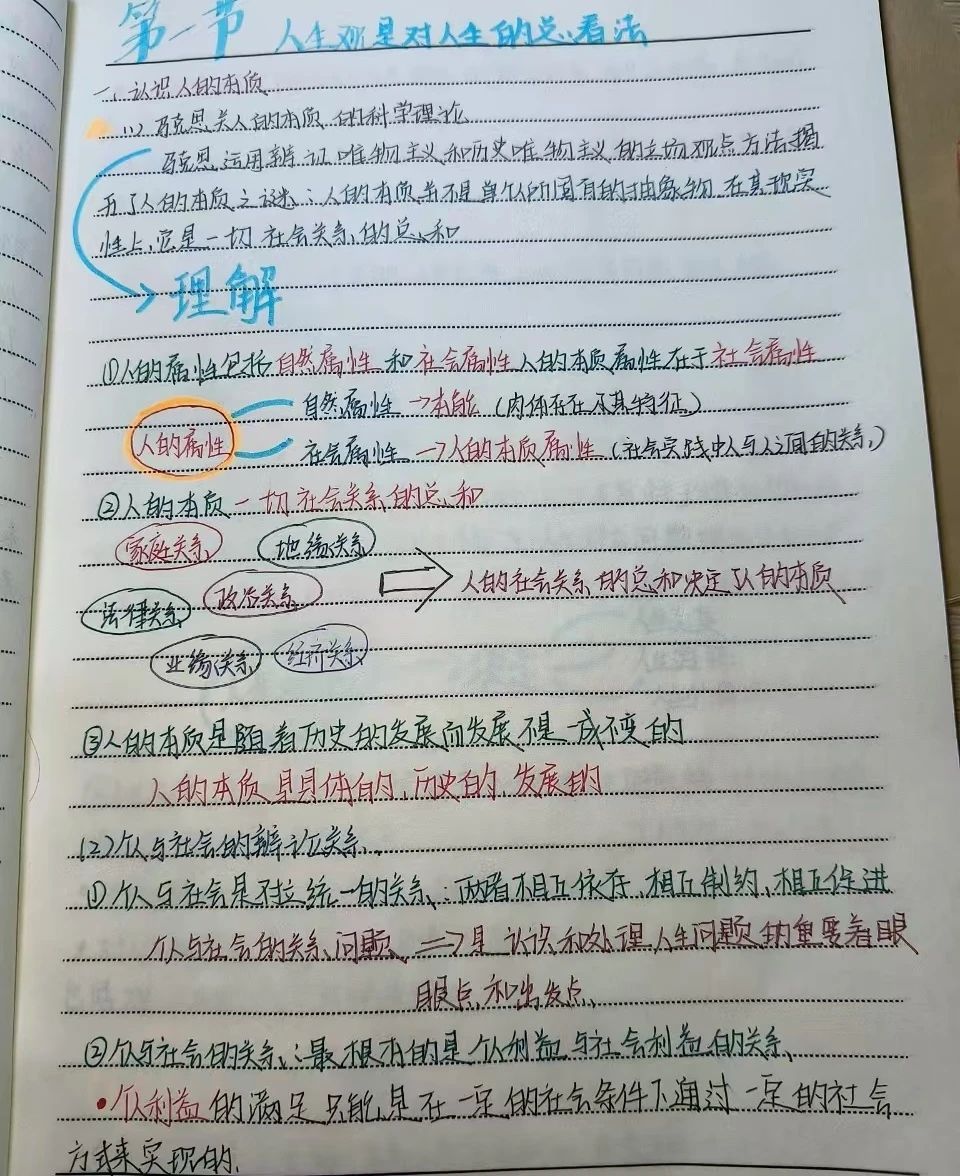 第一节 人生观是对人生的总看法
一、认识人的本质
(1) 马克思关人的本质的科学理论
马克思运用辩证唯物主义和历史唯物主义的立场观点方法揭
开了人的本质之谜：人的本质并不是单个人所固有的抽象物,在其现实
性上,它是一切社会关系的总和
理解
①人的属性包括自然属性和社会属性人的本质属性在于社会属性
自然属性→本能(肉体存在及其特征)
人的属性
社会属性→人的本质属性(社会实践中人与人之间的关系)
②人的本质一切社会关系的总和
家庭关系 地缘关系
人的社会关系的总和决定了人的本质
法律关系 政治关系
业缘关系 经济关系
③人的本质是随着历史的发展而发展,不是一成不变的
人的本质是具体的,历史的,发展的
(2)个人与社会的辩论关系
①个人与社会是对立统一的关系：两者相互依存,相互制约,相互促进
个人与社会的关系问题⇒是认识和处理人生问题的重要着眼
眼点和出发点
②个人与社会的关系：最根本的是个人利益与社会利益的关系
•个人利益的满足只能是在一定的社会条件下通过一定的社会
方式来实现的